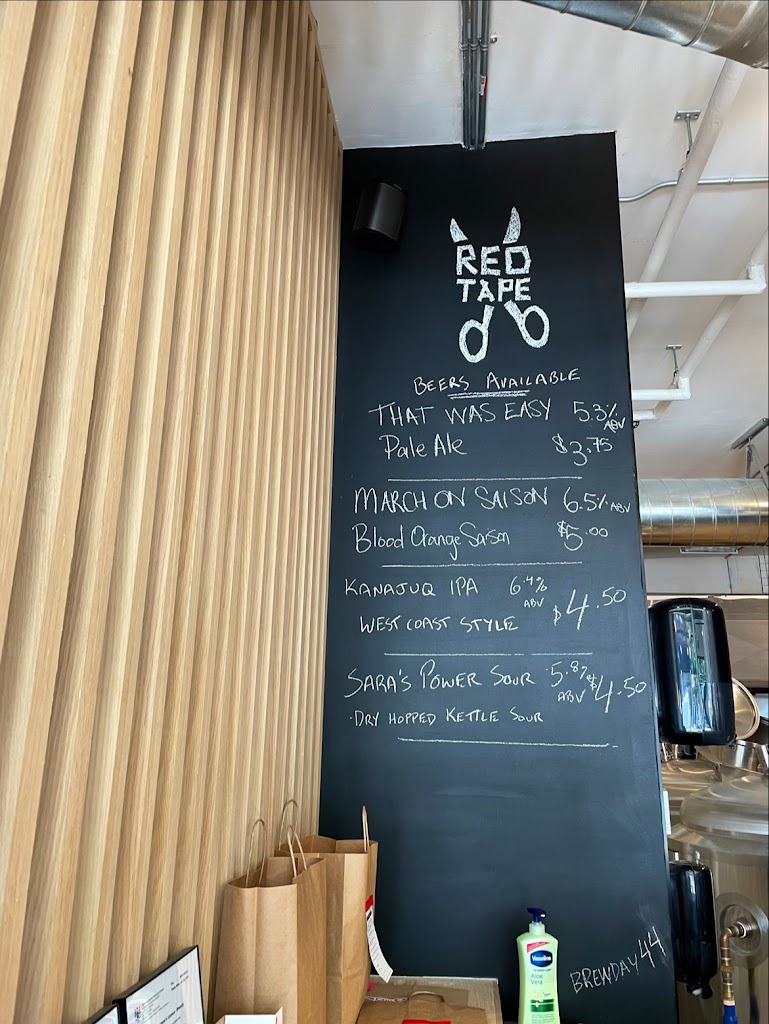 RED
TAPE
BEERS AVAILABLE
THAT WAS EASY 5.3% ABV
Pale Ale $3.75
MARCH ON SAISON 6.5% ABV
Blood Orange Saison $5.00
KANAJUQ IPA 6.4% ABV
WEST COAST STYLE $4.50
SARA'S POWER SOUR 5.8% ABV $4.50
·DRY HOPPED KETTLE SOUR
BREWDAY 44
Vaseline
Aloe
Vera